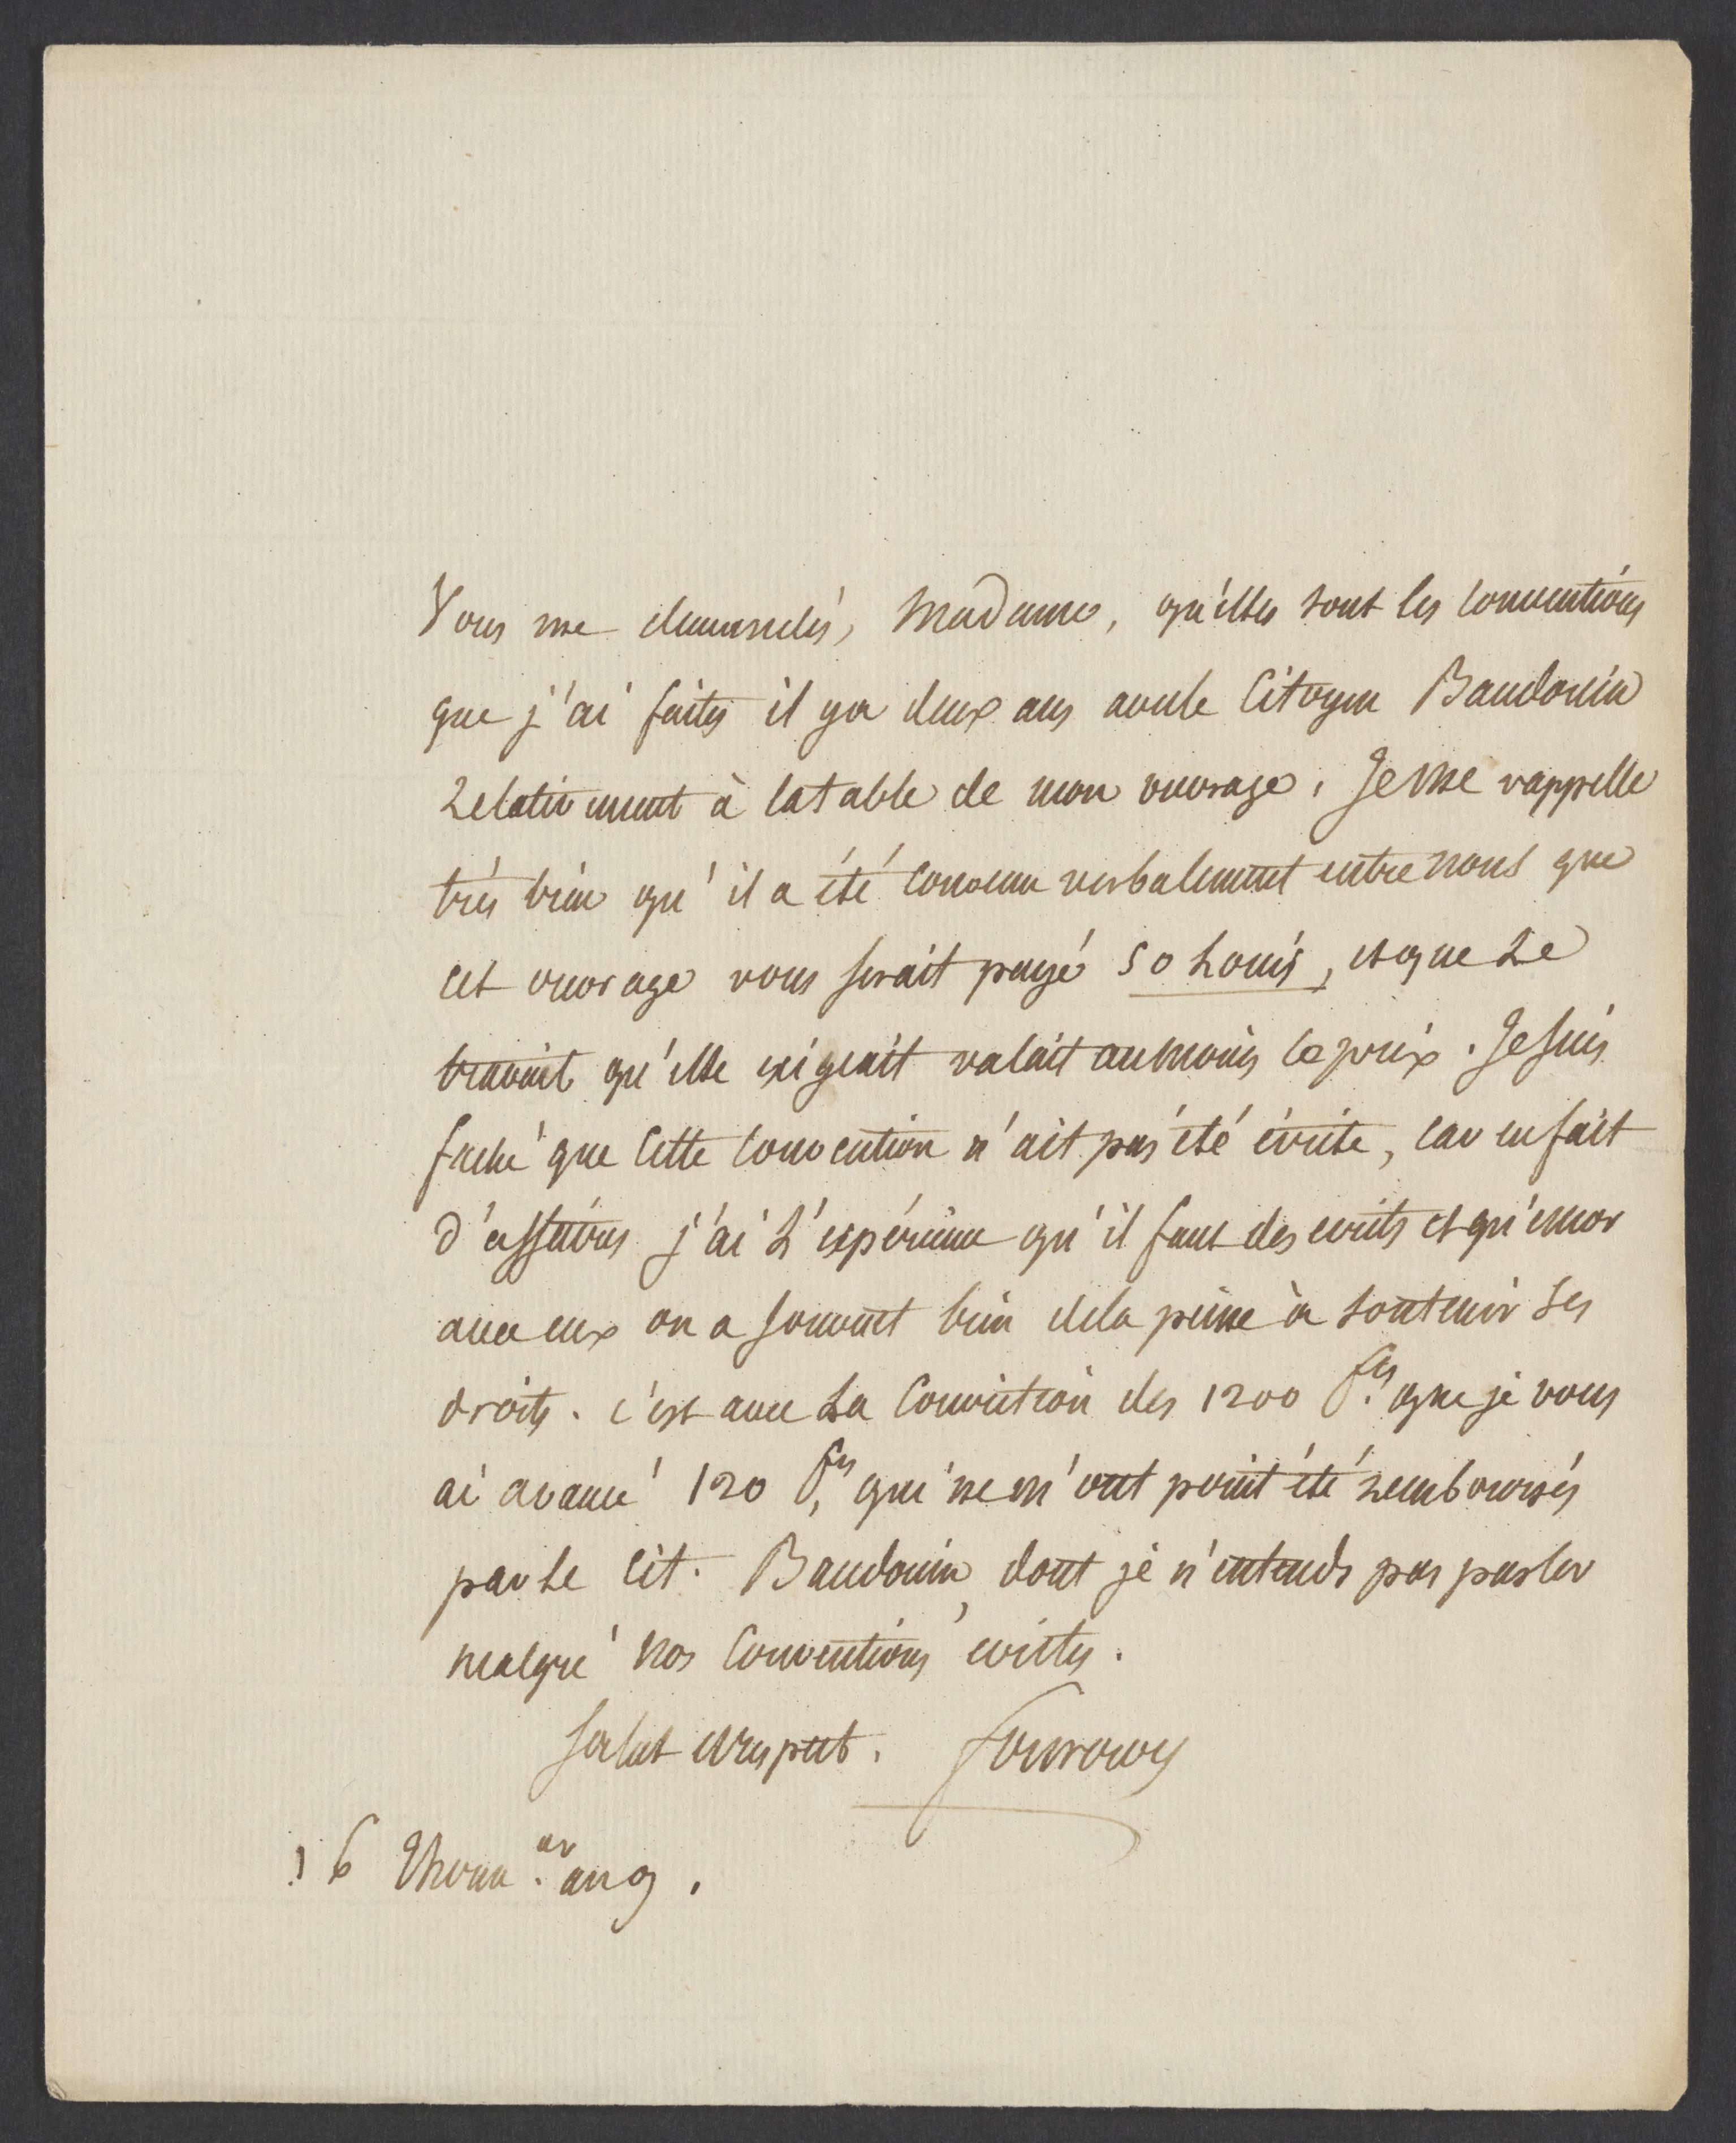 Vous me demandés, Madame, qu'elles sont les conventions
que j'ai faites il ya deux ans avec le Citoyen Baudouin
relativement à la table de mon ouvrage. Je me rappelle
très bien qu'il a été convenu verbalement entre nous que
cet ouvrage vous serait payé 50 Louis, et que le
travail qu'elle exigeait valait au moins ce prix. Je suis
faché que cette convention n'ait pas été écrite, car en fait
d'affaires j'ai l'expérience qu'il faut des ecrits et qu'encor
avec eux on a souvent bien de la peine à soutenir ses
droits. c'est avec la conviction des 1200 f.cs que je vous
ai avancé 120 f.cs qui ne m'ont point été remboursés
par le cit. Baudouin, dont je n'entends pas parler
malgré nos conventions ecrites.
Salut et respect. Fourcroy
16 Therm.or an 9.